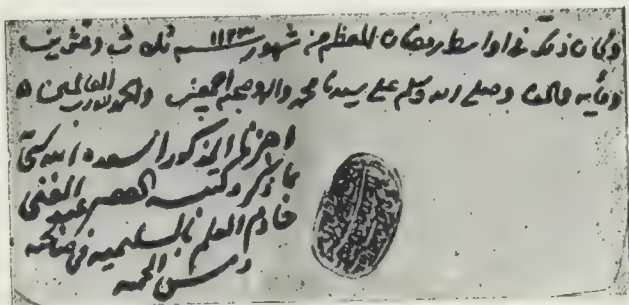 وكان ذلك في اواسط رمضان المعظم من شهور سنة ١١٢٣ ثلاث وعشرين
ومايه والف وصلى الله وسلم على سيدنا محمد واله وصحبه اجمعين والحمد لله رب العالمين
المذكور اسعده الله
بما ذكر وكتبه الفقير عبد الغني
خادم العلم بالسليمية في صالحية
دمشق المحميه